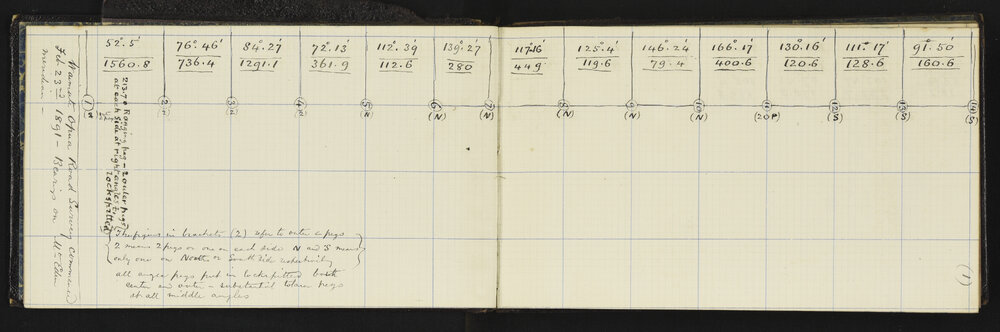 Opua Road Survey commenced
Feb 23rd 1891 - Bearings on Mt Eden
meridian -
52°.5' 76°.46' 84°.27' 72°.13' 112°.39' 139°.27' 117.16 125°.4' 146°.24' 166°.17' 130°.16' 111°.17' 91°.50'
1560.8 736.4 1291.1 361.9 112.6 280 449 119.6 79.4 400.6 120.6 128.6 160.6
1 2 3 4 5 6 7 8 9 10 11 12 13 14
N N N N (N) (N) (N) (N) (N) (20P) (S) (S) (S)
213.7 Ranging peg - 2 outer pegs
at each side at right angles to
Lockspitted
The figures in brackets (2) refer to outer pegs
2 means 2 pegs or one on each side N and S means
only one on North or South side respectively
all angle pegs put in lockspitted both
center and outer - substantial totara pegs
at all middle angles
(1)